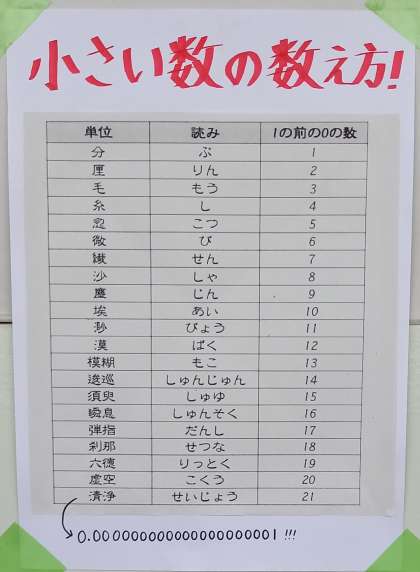 小さい数の数え方!
単位 読み 1の前の0の数
分 ぶ 1
厘 りん 2
毛 もう 3
糸 し 4
忽 こつ 5
微 び 6
繊 せん 7
沙 しゃ 8
塵 じん 9
埃 あい 10
渺 びょう 11
漠 ばく 12
模糊 もこ 13
逡巡 しゅんじゅん 14
須臾 しゅゆ 15
瞬息 しゅんそく 16
弾指 だんし 17
刹那 せつな 18
六徳 りっとく 19
虚空 こくう 20
清浄 せいじょう 21
0.000000000000000000001 !!!